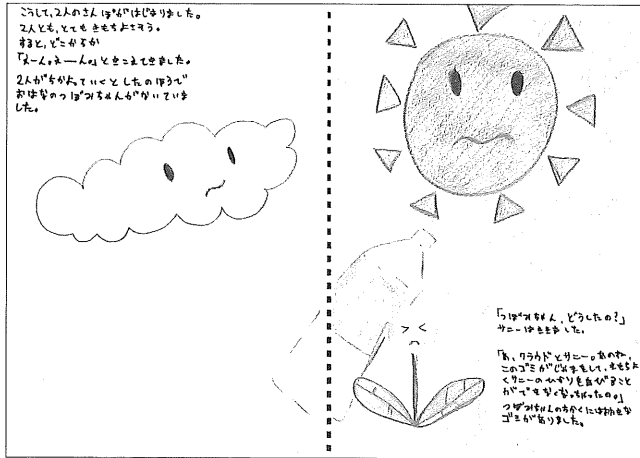 こうして、2人のさんぽがはじまりました。
2人とも、とてもきもちよさそう。
すると、どこからか
「えーん。えーん。」ときこえてきました。
2人がちかよっていくとしたのほうで
おはなのつぼみちゃんがないていま
した。
「つぼみちゃん、どうしたの?」
サニーはききました。
「あ、クラウドとサニー。あのね、
このゴミがじゃまをして、きもちよ
くサニーのひかりをあびること
ができなくなっちゃったの。」
つぼみちゃんのちかくには大きな
ゴミがありました。